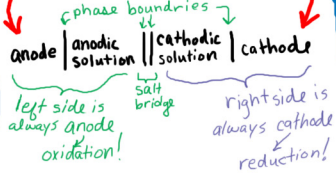 phase boundries
anode | anodic solution || cathodic solution | cathode
salt bridge
left side is
always anode
oxidation!
right side is
always cathode
reduction!